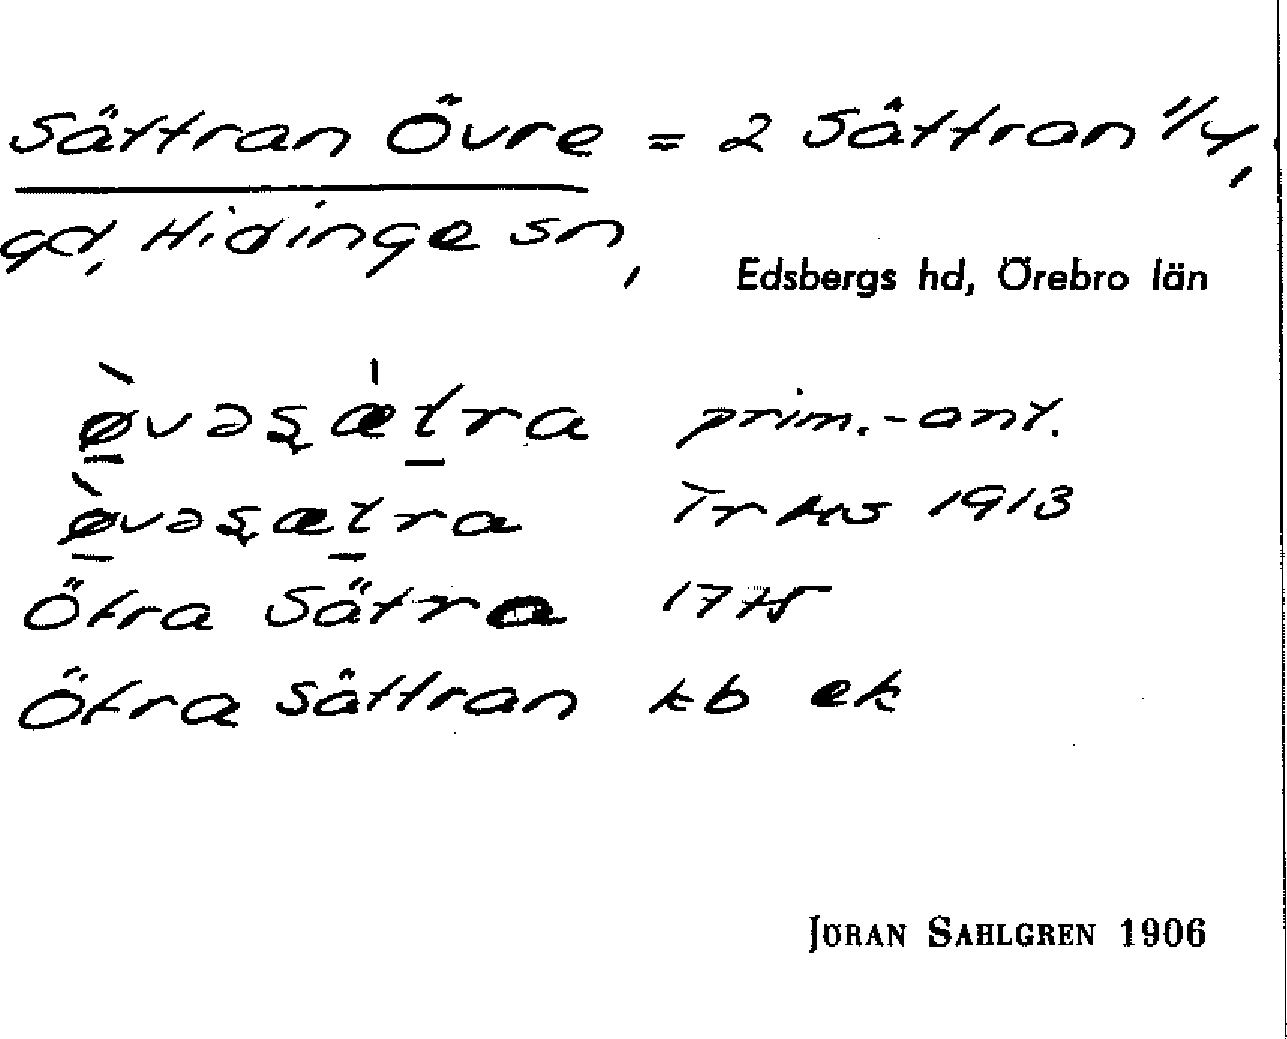 Sättran Övre = 2 Sättran 1/4,
gd, Hidinge sn,
Edsbergs hd, Örebro län
ø̀vəşæ̍tra prim.-ant.
ø̀vəşætra 1913
Öfra Sätra 1775
Öfra Sättran kb ek
JÖRAN SAHLGREN 1906